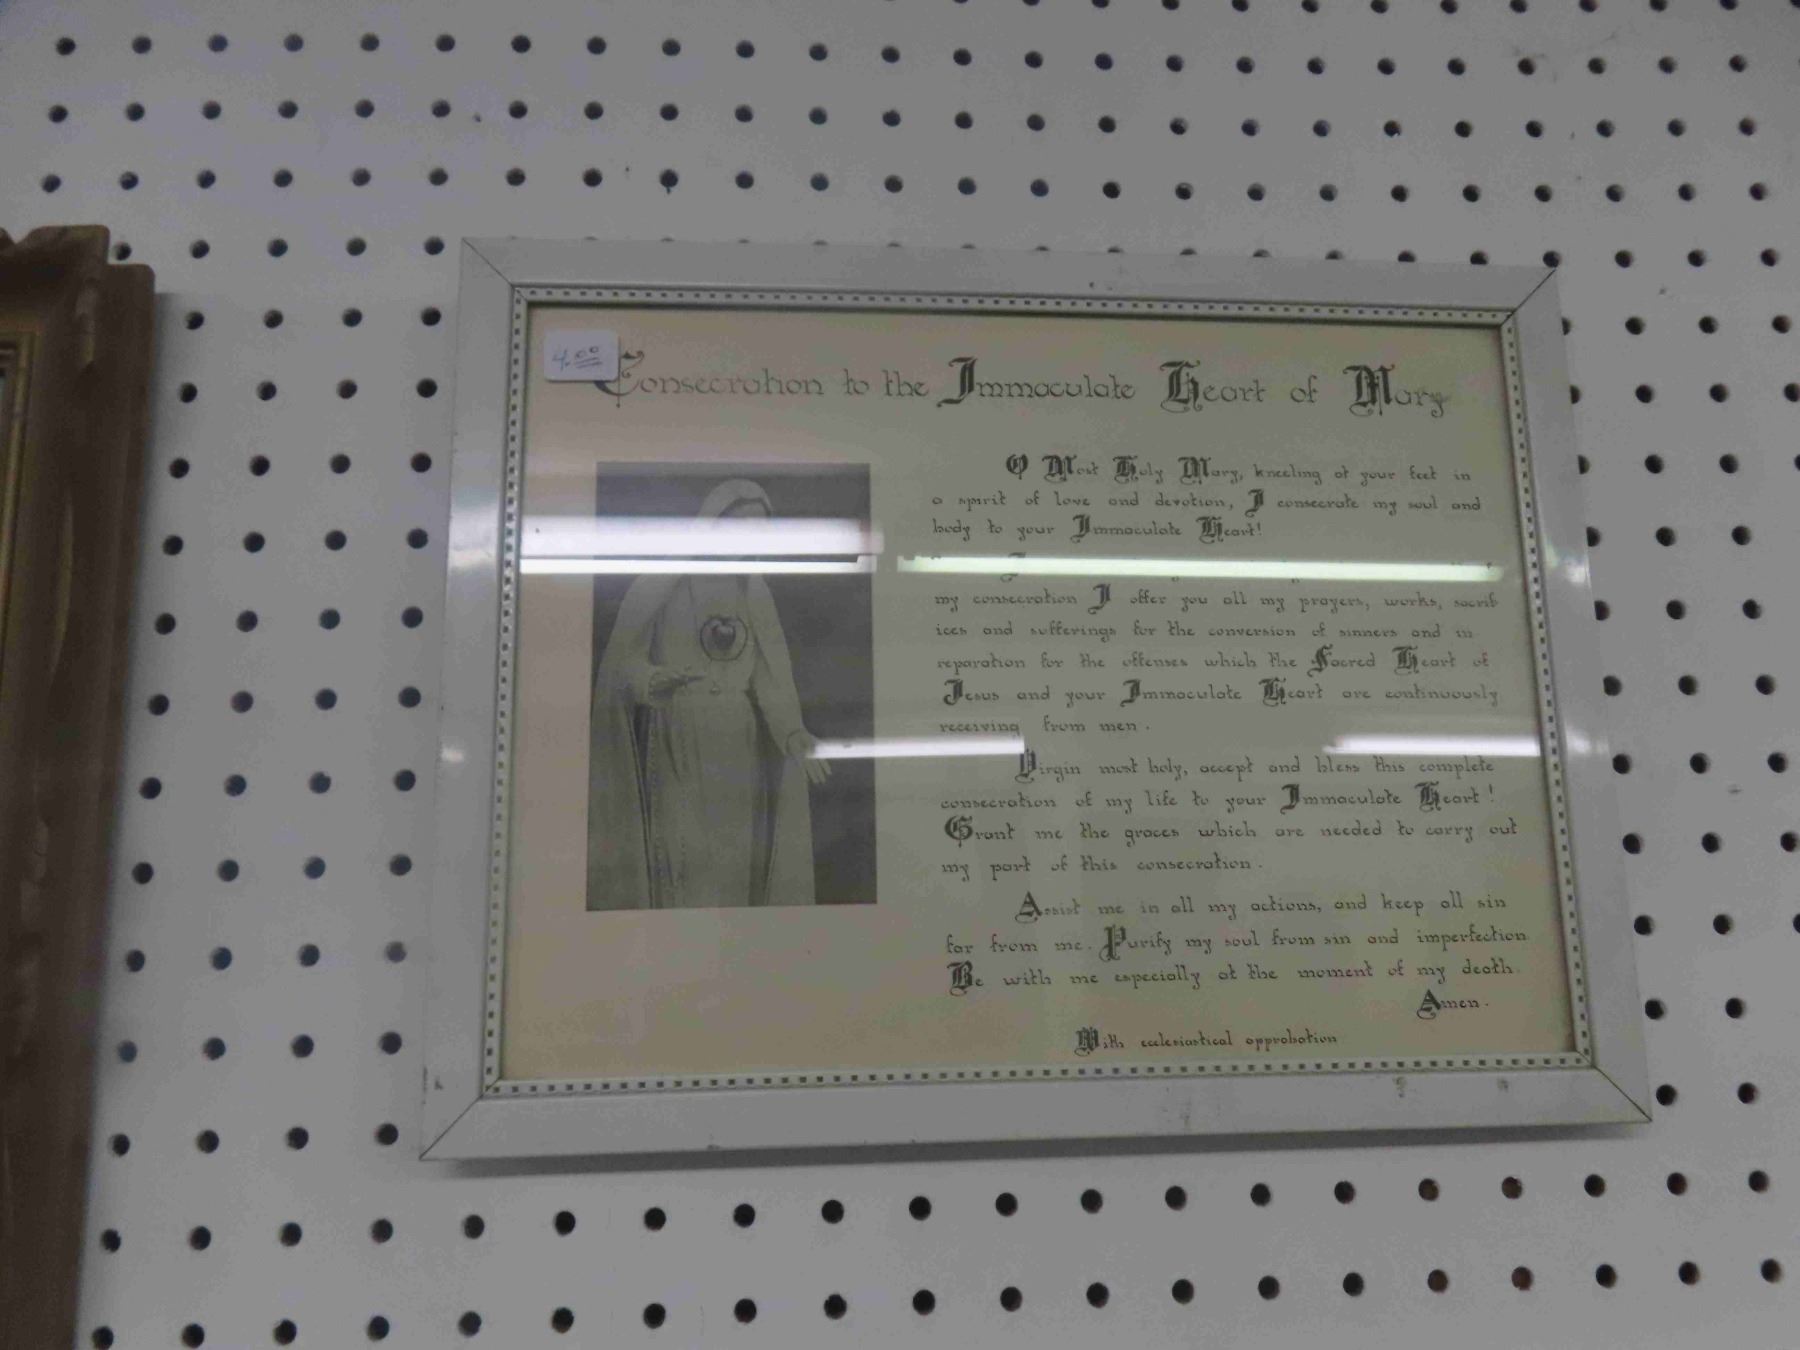 4.00
Consecration to the Immaculate Heart of Mary
O Most Holy Mary, kneeling at your feet in
a spirit of love and devotion, I consecrate my soul and
body to your Immaculate Heart!
I
my consecration I offer you all my prayers, works, sacrif
ices and sufferings for the conversion of sinners and in
reparation for the offenses which the Sacred Heart of
Jesus and your Immaculate Heart are continuously
receiving from men.
Virgin most holy, accept and bless this complete
consecration of my life to your Immaculate Heart!
Grant me the graces which are needed to carry out
my part of this consecration.
Assist me in all my actions, and keep all sin
far from me. Purify my soul from sin and imperfection.
Be with me especially at the moment of my death.
Amen.
With ecclesiastical approbation